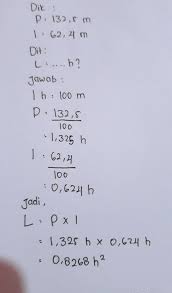 Dik :
P = 132,5 m
l = 62,4 m
Dit:
L = .... h?
Jawab :
1 h = 100 m
P = 132,5
100
= 1,325 h
l = 62,4
100
= 0,624 h
Jadi,
L = P x l
= 1,325 h x 0,624 h
= 0,8268 h²